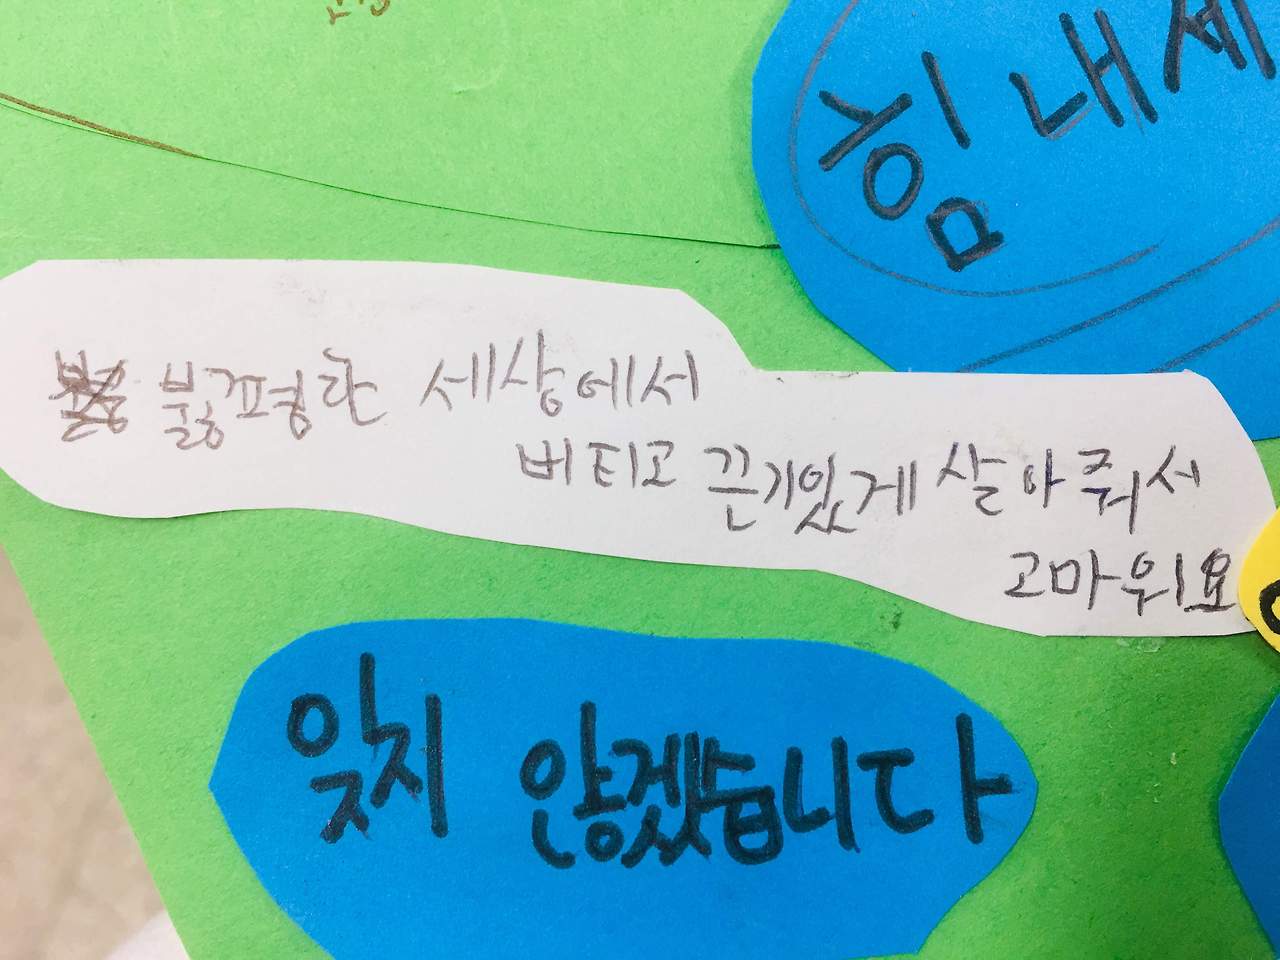 힘내세
불공평한 세상에서
버티고 끈기있게 살아줘서
고마워요
잊지 않겠습니다